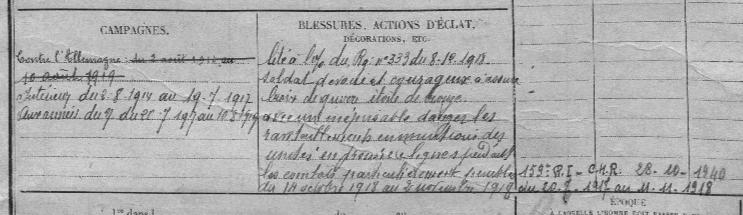 CAMPAGNES.
Contre l'Allemagne du 2 août 1914 au
10 août 1919
Intérieur du 2.8.1914 au 19.7.1917
Aux armées du du 20.7.1917 au
BLESSURES, ACTIONS D'ÉCLAT,
DÉCORATIONS, ETC.
Cité à l'o/ du Rg. n° 333 du 8.10.1918.
soldat dévoué et courageux a assuré
Croix de guerre étoile de bronze
avec un danger les
en munitions des
unités en première lignes
les combats particulièrement
du 14 octobre 1918 au 2 novembre 1918
159e R.I - C.H.R. 28-10-1940
du 20.7.1917 au 11.11.1918
ÉPOQUE
À LAQUELLE L'HOMME DOIT PASSER DANS